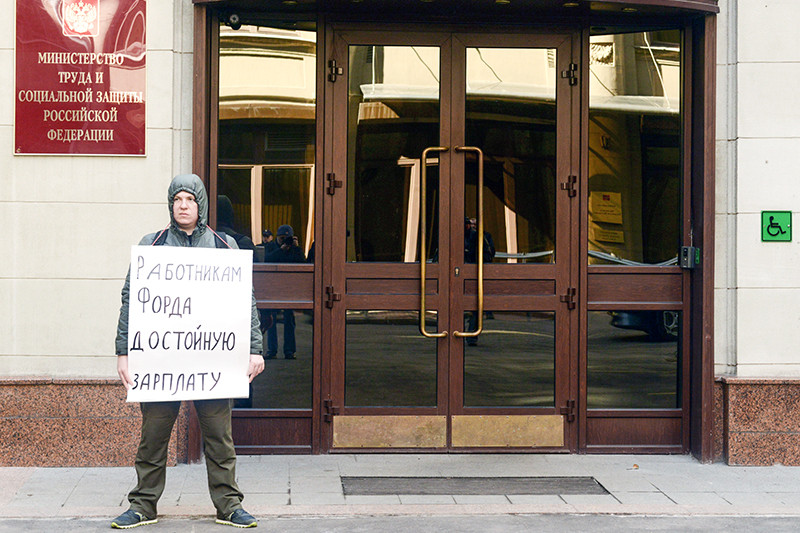 МИНИСТЕРСТВО
ТРУДА И
СОЦИАЛЬНОЙ ЗАЩИТЫ
РОССИЙСКОЙ
ФЕДЕРАЦИИ
РАБОТНИКАМ
ФОРДА
ДОСТОЙНУЮ
ЗАРПЛАТУ